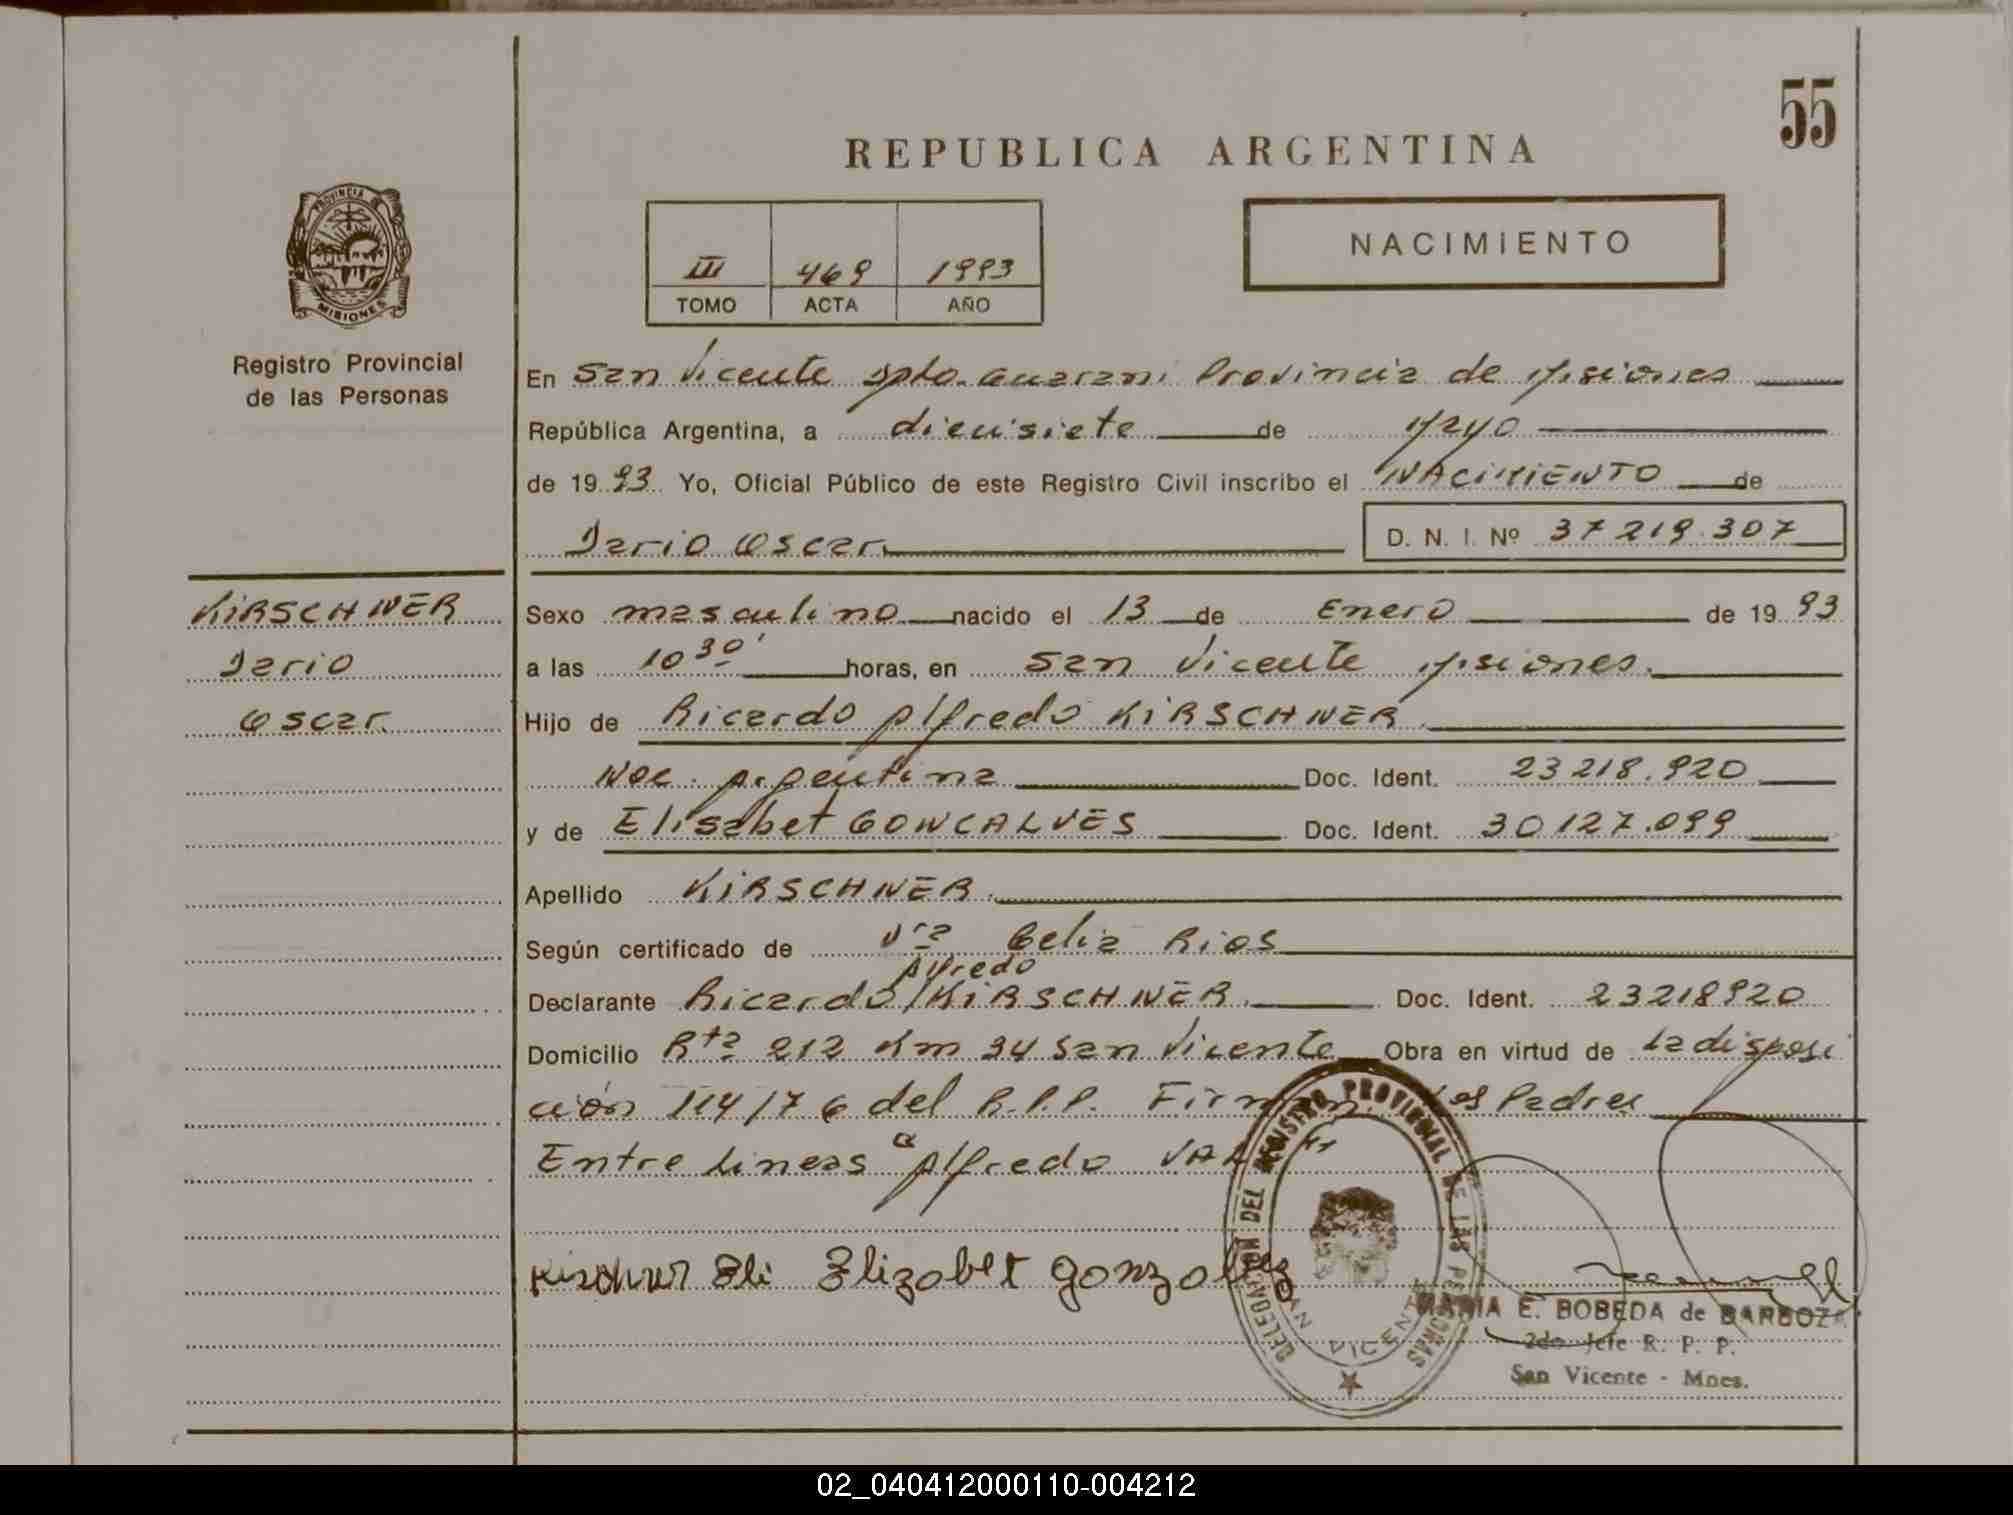 55
REPUBLICA ARGENTINA
PROVINCIA DE
MISIONES
Registro Provincial
de las Personas
III 469 1993
TOMO ACTA AÑO
NACIMIENTO
En San Vicente Dpto. Guarani Provincia de Misiones
República Argentina, a diecisiete de Mayo
de 1993 Yo, Oficial Público de este Registro Civil inscribo el NACIMIENTO de
Dario Oscar. D. N. I. Nº 37219.307
KIRSCHNER
Dario
Oscar.
Sexo masculino nacido el 13 de Enero de 1993
a las 10 30' horas, en San Vicente Misiones.
Hijo de Ricardo Alfredo KIRSCHNER.
Nac. Argentina Doc. Ident. 23218.920
y de Elisabet GONCALVES Doc. Ident. 30127.099
Apellido KIRSCHNER.
Según certificado de Dra Celia Rios
Alfredo
Declarante Ricardo / KIRSCHNER. Doc. Ident. 23218920
Domicilio Rta 212 Km 34 San Vicente Obra en virtud de la disposi
ción 114/76 del R.P.P. Firman los Padres
Entre lineas "Alfredo VALE"
Elizabet gonzalvez
DELEGACION DEL REGISTRO PROVINCIAL DE LAS PERSONAS
SAN VICENTE
MARIA E. BOBEDA de BARBOZA
2do Jefe R. P. P.
San Vicente - Mnes.
02_040412000110-004212